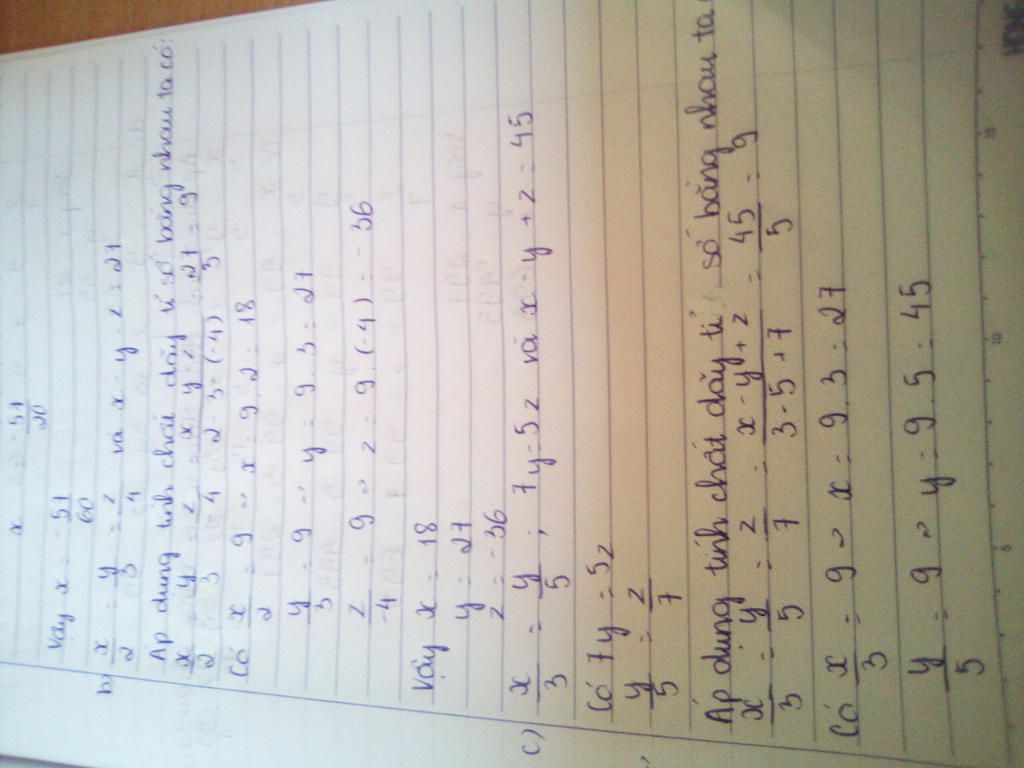 x = - 51/20
Vậy x = - 51/60
b) x/2 = y/3 = z/4 và x - y - z = 21
Áp dụng tính chất dãy tỉ số bằng nhau ta có:
x/2 = y/3 = z/-4 = x - y - z / 2 - 3 - (-4) = 21/3 = 9
Có x/2 = 9 => x = 9.2 = 18
y/3 = 9 => y = 9.3 = 27
z/-4 = 9 => z = 9.(-4) = - 36
Vậy x = 18
y = 27
z = -36
c) x/3 = y/5 ; 7y = 5z và x - y + z = 45
Có 7y = 5z
y/5 = z/7
Áp dụng tính chất dãy tỉ số bằng nhau ta
x/3 = y/5 = z/7 = x - y + z / 3 - 5 + 7 = 45/5 = 9
Có x/3 = 9 => x = 9.3 = 27
y/5 = 9 => y = 9.5 = 45